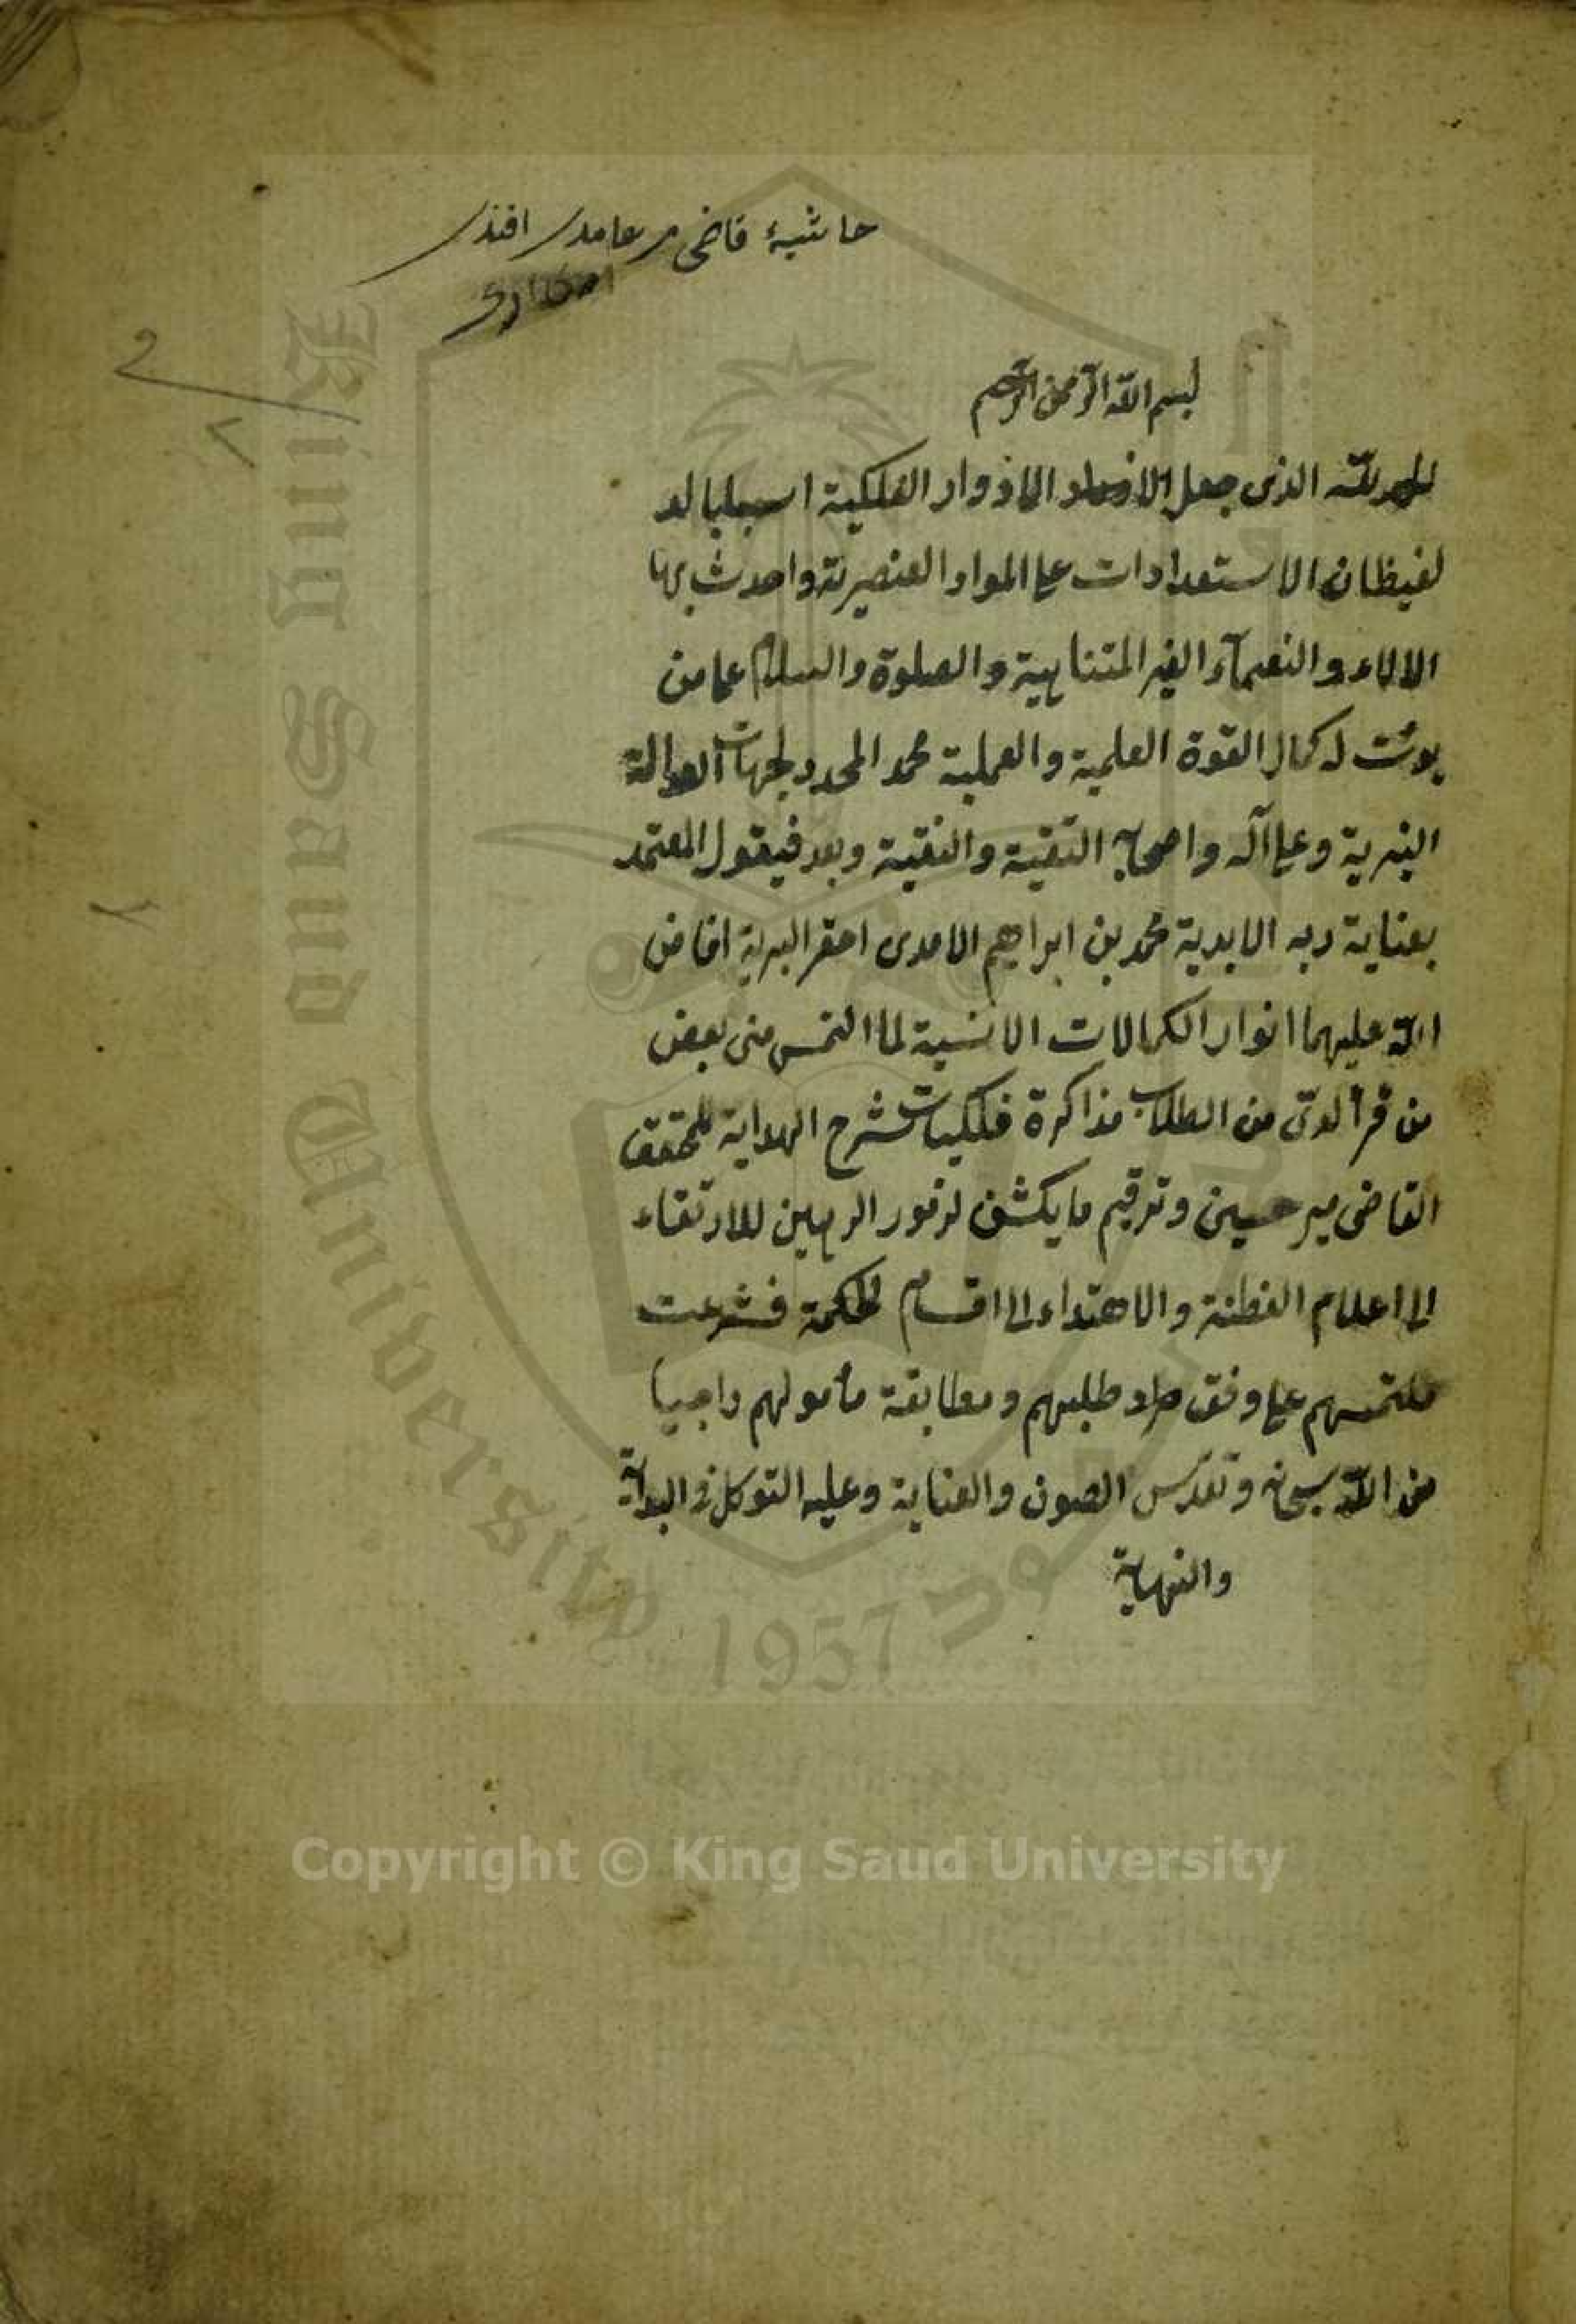 حاشيۀ قاضى مير عامدى افندى
بسم الله الرحمن الرحيم
الحمد لله الذى جعل الادوار الفلكية اسبابا
لفيظان الاستعدادات على المواد العنصرية واحدث بها
الالاء والنعمآء الغير المتناهية والصلوة والسلام على من
له كمال القوة العلمية والعملية محمد المحدد لجهات العدالة
النيرية وعلى آله واصحابه التقية والنقية وبعد فيقول المعتمد
بعناية ربه الابدية محمد بن ابراهيم الامدى احقر البرية افاض
الله عليهما انوار الكمالات الانسية لما التمس منى بعض
من قرأ لدىّ من الطلاب مذاكرة فلكيات شرح الهداية للمحقق
القاضى مير حسين وترقيم ما يكشف لزمور الرهين للارتقاء
الى اعلام الفطنة والاهتداء الى اقسام الحكمة فشرعت
ملتمسهم على وفق مراد طلبهم ومطابقة مأمولهم راجيا
من الله سبحانه وتقدس الصون والعناية وعليه التوكل فى البداية
والنهاية
King Saud University
1957
Copyright © King Saud University